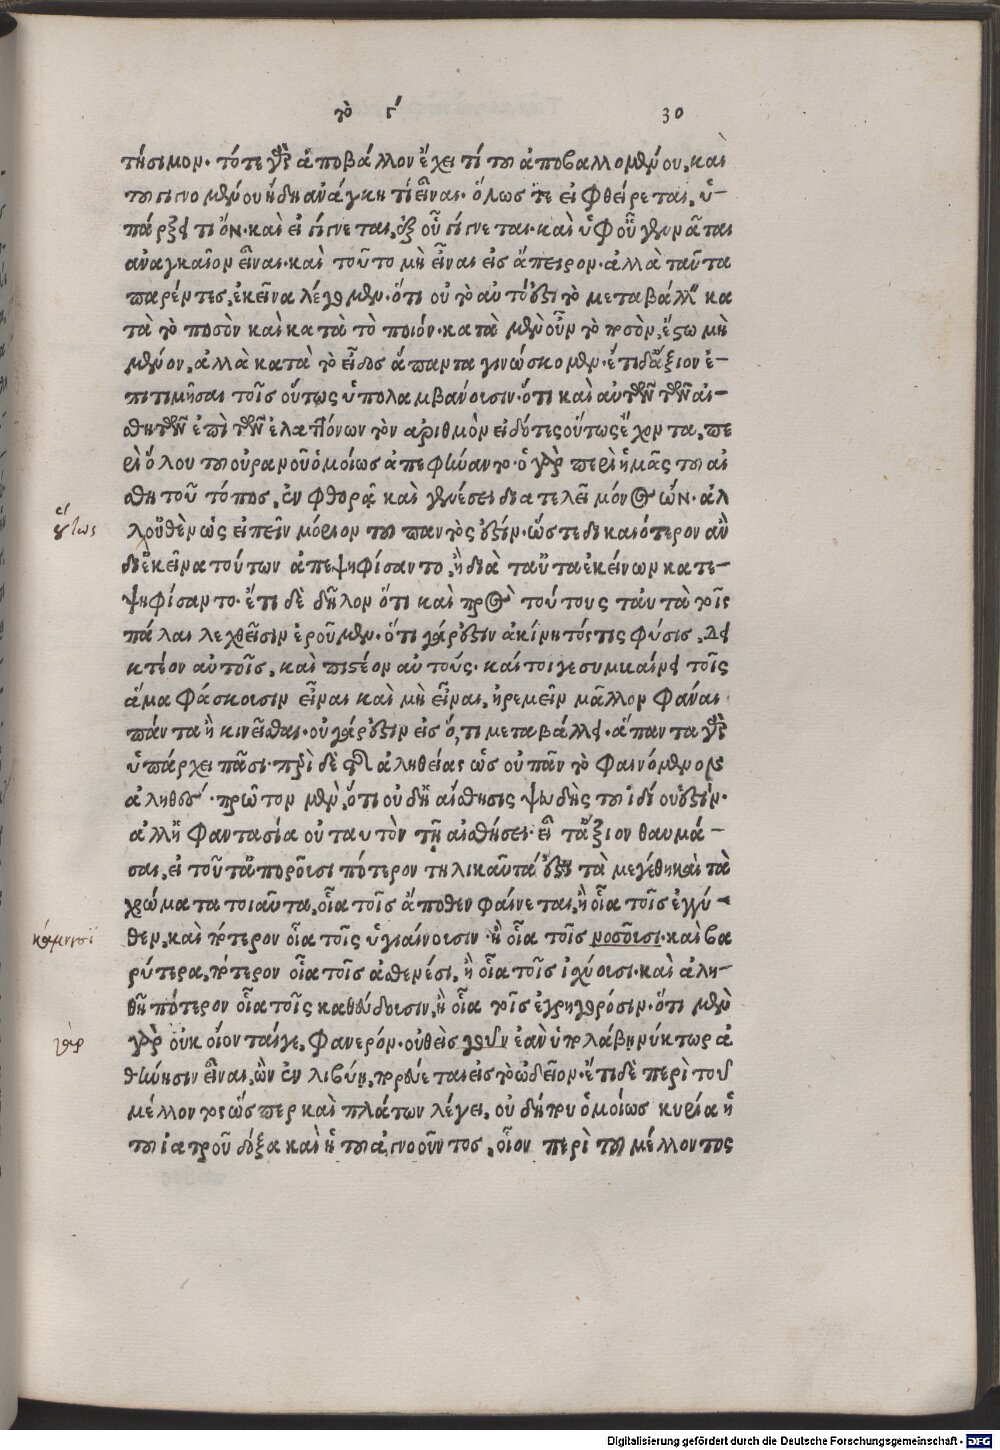 τὸ Γ´ 30
τήσιμον. τότε γὰρ ἀποβάλλον ἔχει τί τοῦ ἀποβαλλομένου, καὶ
τοῦ γιγνομένου ἤδη ἀνάγκη τὶ εἶναι. ὅλως τε εἰ φθείρεται, ὑ-
πάρξει τι ὄν. καὶ εἰ γίγνεται, ἐξ οὗ γίγνεται. καὶ ὑφ' οὗ γεννᾶται
ἀναγκαῖον εἶναι. καὶ τοῦτο μὴ εἶναι εἰς ἄπειρον. ἀλλὰ ταῦτα
παρέντες, ἐκεῖνα λέγωμεν. ὅτι οὐ τὸ αὐτό ἐστι τὸ μεταβάλλειν κα
τὰ τὸ ποσὸν καὶ κατὰ τὸ ποιόν. κατὰ μὲν οὖν τὸ ποσὸν, ἔστω μὴ
μένον, ἀλλὰ κατὰ τὸ εἶδος ἅπαντα γινώσκομεν. ἔτι δ' ἄξιον ἐ-
πιτιμῆσαι τοῖς οὕτως ὑπολαμβάνουσιν. ὅτι καὶ αὐτῶν τῶν αἰ-
σθητῶν ἐπὶ τῶν ἐλαττόνων τὸν ἀριθμὸν εἰδότες οὕτως ἔχοντα, πε
ρὶ ὅλου τοῦ οὐρανοῦ ὁμοίως ἀπεφήναντο. ὁ γὰρ περὶ ἡμᾶς τοῦ αἰ
σθητοῦ τόπος, ἐν φθορᾷ καὶ γενέσει διατελεῖ μόνος ὤν. ἀλ
οὕτως
λ' οὐθὲν ὡς εἰπεῖν μόριον τοῦ παντὸς ἐστίν. ὥστε δικαιότερον ἂν
δι' ἐκεῖνα τούτων ἀπεψηφίσαντο, ἢ διὰ ταῦτα ἐκείνων κατε-
ψηφίσαντο. ἔτι δὲ δῆλον ὅτι καὶ πρὸς τούτους ταὐτὰ τοῖς
πάλαι λεχθεῖσιν ἐροῦμεν. ὅτι γάρ ἐστιν ἀκίνητός τις φύσις, δει
κτέον αὐτοῖς, καὶ πιστέον αὐτούς. καίτοι γε συμβαίνει τοῖς
ἅμα φάσκουσιν εἶναι καὶ μὴ εἶναι, ἠρεμεῖν μᾶλλον φάναι
πάντα ἢ κινεῖσθαι. οὐ γάρ ἐστιν εἰς ὅ,τι μεταβάλλει. ἅπαντα γὰρ
ὑπάρχει πᾶσι. περὶ δὲ τῆς ἀληθείας ὡς οὐ πᾶν τὸ φαινόμενον
ἀληθές. πρῶτον μὲν, ὅτι οὐδ' ἡ αἴσθησις ψευδὴς τοῦ ἰδίου ἐστίν.
ἀλλ' ἡ φαντασία οὐ ταυτὸν τῇ αἰσθήσει. εἶτ' ἄξιον θαυμά-
σαι, εἰ τοῦτ' ἀποροῦσι πότερον τηλικαῦτά ἐστι τὰ μεγέθη καὶ τὰ
χρώματα τοιαῦτα, οἷα τοῖς ἄποθεν φαίνεται, ἢ οἷα τοῖς ἐγγύ-
κάμνουσι
θεν, καὶ πότερον οἷα τοῖς ὑγιαίνουσιν ἢ οἷα τοῖς νοσοῦσι. καὶ βα
ρύτερα, πότερον οἷα τοῖς ἀσθενέσι, ἢ οἷα τοῖς ἰσχύουσι. καὶ ἀλη-
θῆ πότερον οἷα τοῖς καθεύδουσιν, ἢ οἷα τοῖς ἐγρηγορόσιν. ὅτι μὲν
γὰρ
γὰρ οὐκ οἴονταί γε, φανερόν. οὐθεὶς γοῦν ἐὰν ὑπολάβῃ νύκτωρ ἀ
θήνησιν εἶναι, ὢν ἐν λιβύῃ, πορεύεται εἰς τὸ ᾠδεῖον. ἔτι δὲ περὶ τοῦ
μέλλοντος ὥσπερ καὶ πλάτων λέγει, οὐ δήπου ὁμοίως κυρία ἡ
τοῦ ἰατροῦ δόξα καὶ ἡ τοῦ ἀγνοοῦντος, οἷον περὶ τοῦ μέλλοντος
Digitalisierung gefördert durch die Deutsche Forschungsgemeinschaft - DFG